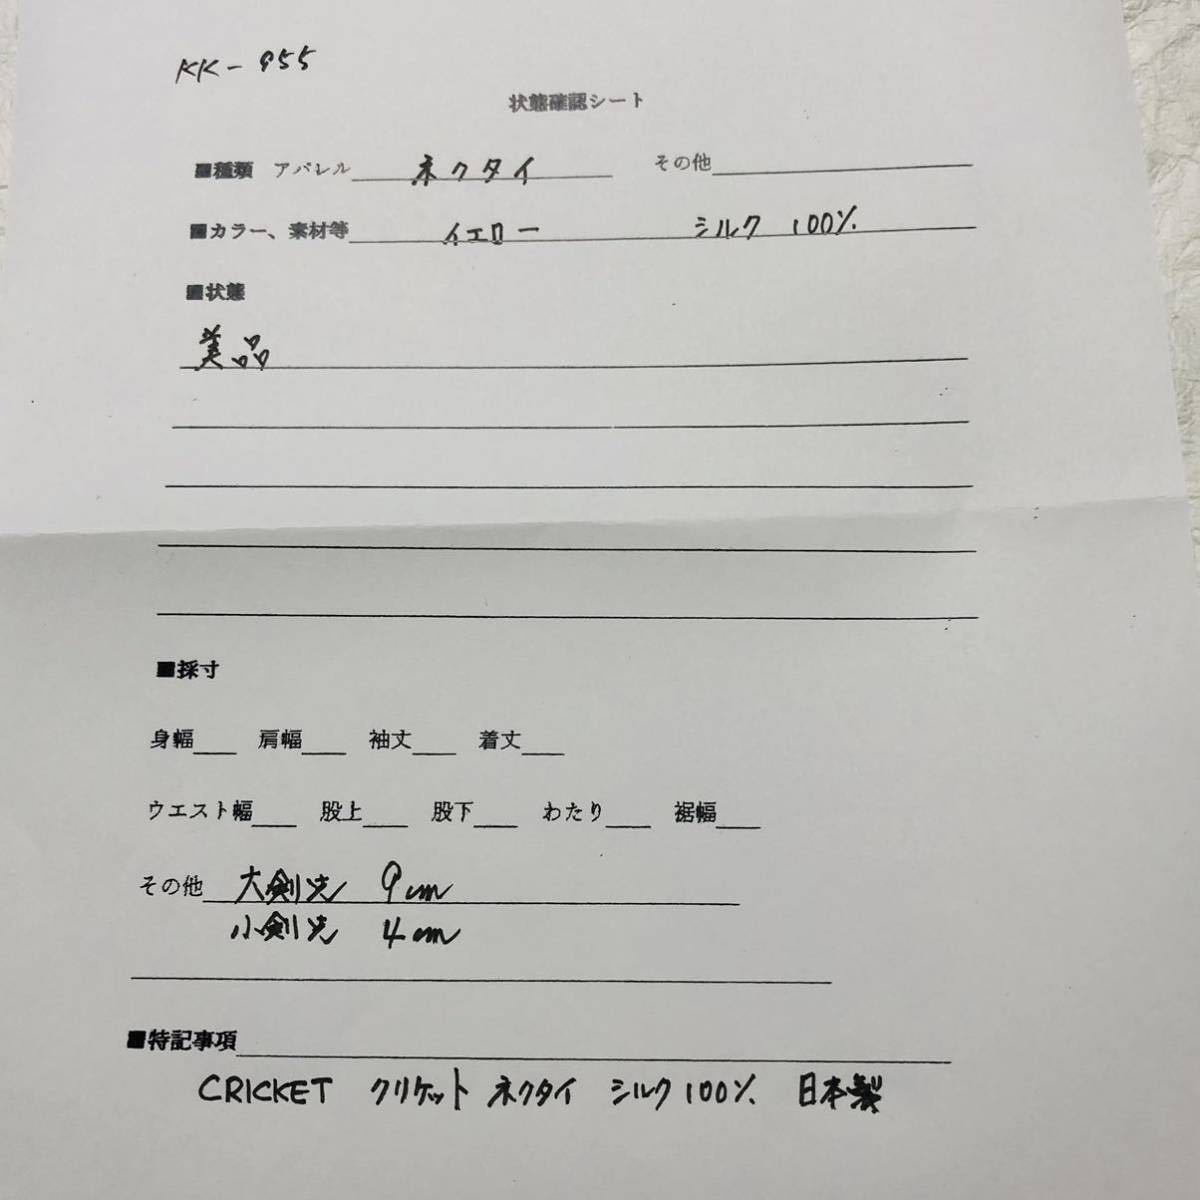 KK-955
状態確認シート
■種類 アパレル ネクタイ その他
■カラー、素材等 イエロー シルク 100%
■状態
美品
■採寸
身幅 肩幅 袖丈 着丈
ウエスト幅 股上 股下 わたり 裾幅
その他 大剣先 9cm
小剣先 4cm
■特記事項
CRICKET クリケット ネクタイ シルク100% 日本製